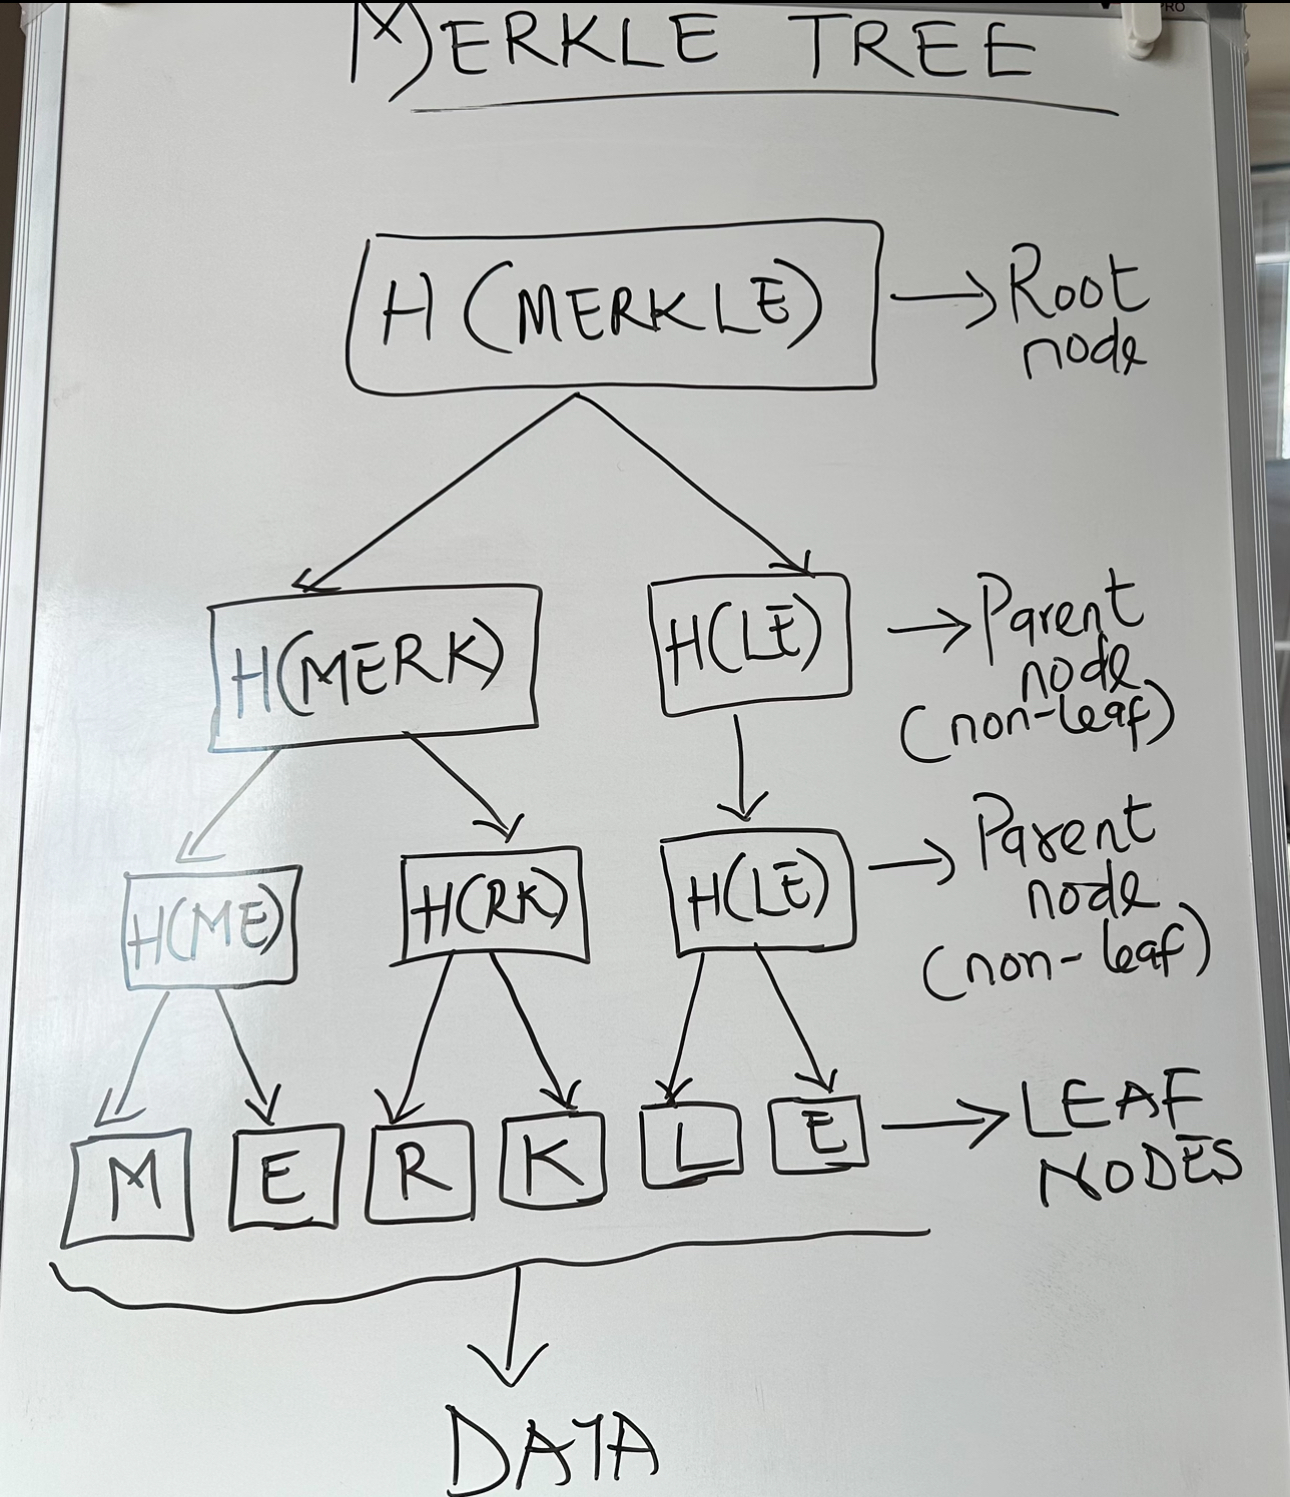 MERKLE TREE
H (MERKLE)
Root
node
H(MERK)
H(LE)
Parent
node
(non-leaf)
H(ME)
H(RK)
H(LE)
Parent
node
(non-leaf)
M E R K L E
LEAF
NODES
DATA